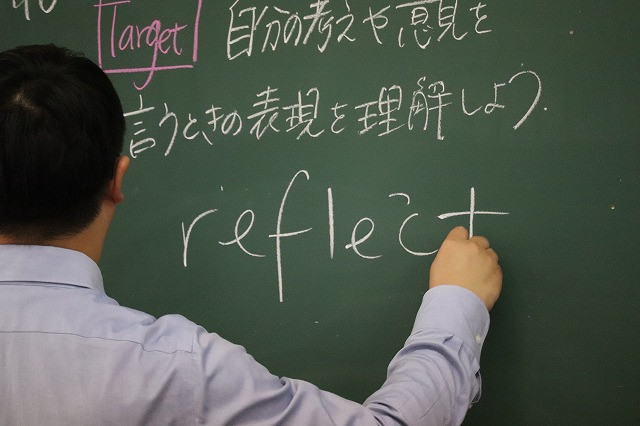 Target 自分の考えや意見を
言うときの表現を理解しよう.
reflect